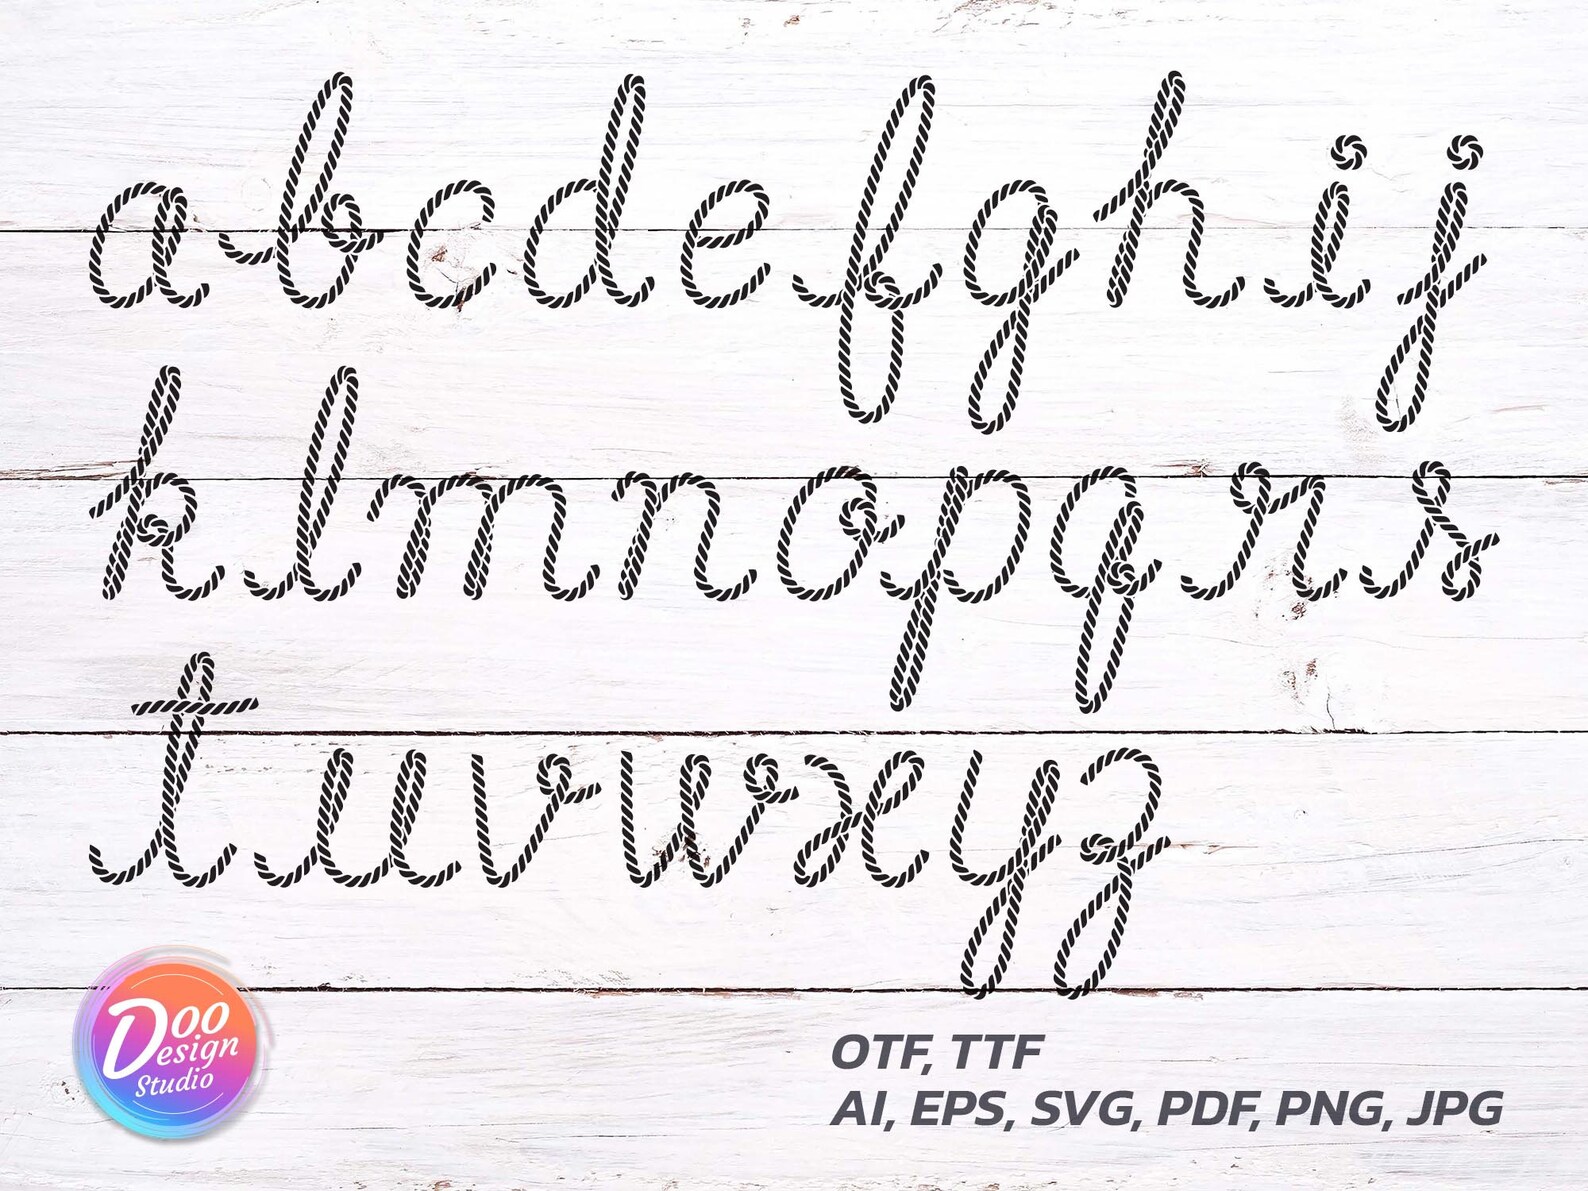 a b c d e f g h i j
k l m n o p q r s
t u v w x y z
Doo
Design
Studio
OTF, TTF
AI, EPS, SVG, PDF, PNG, JPG